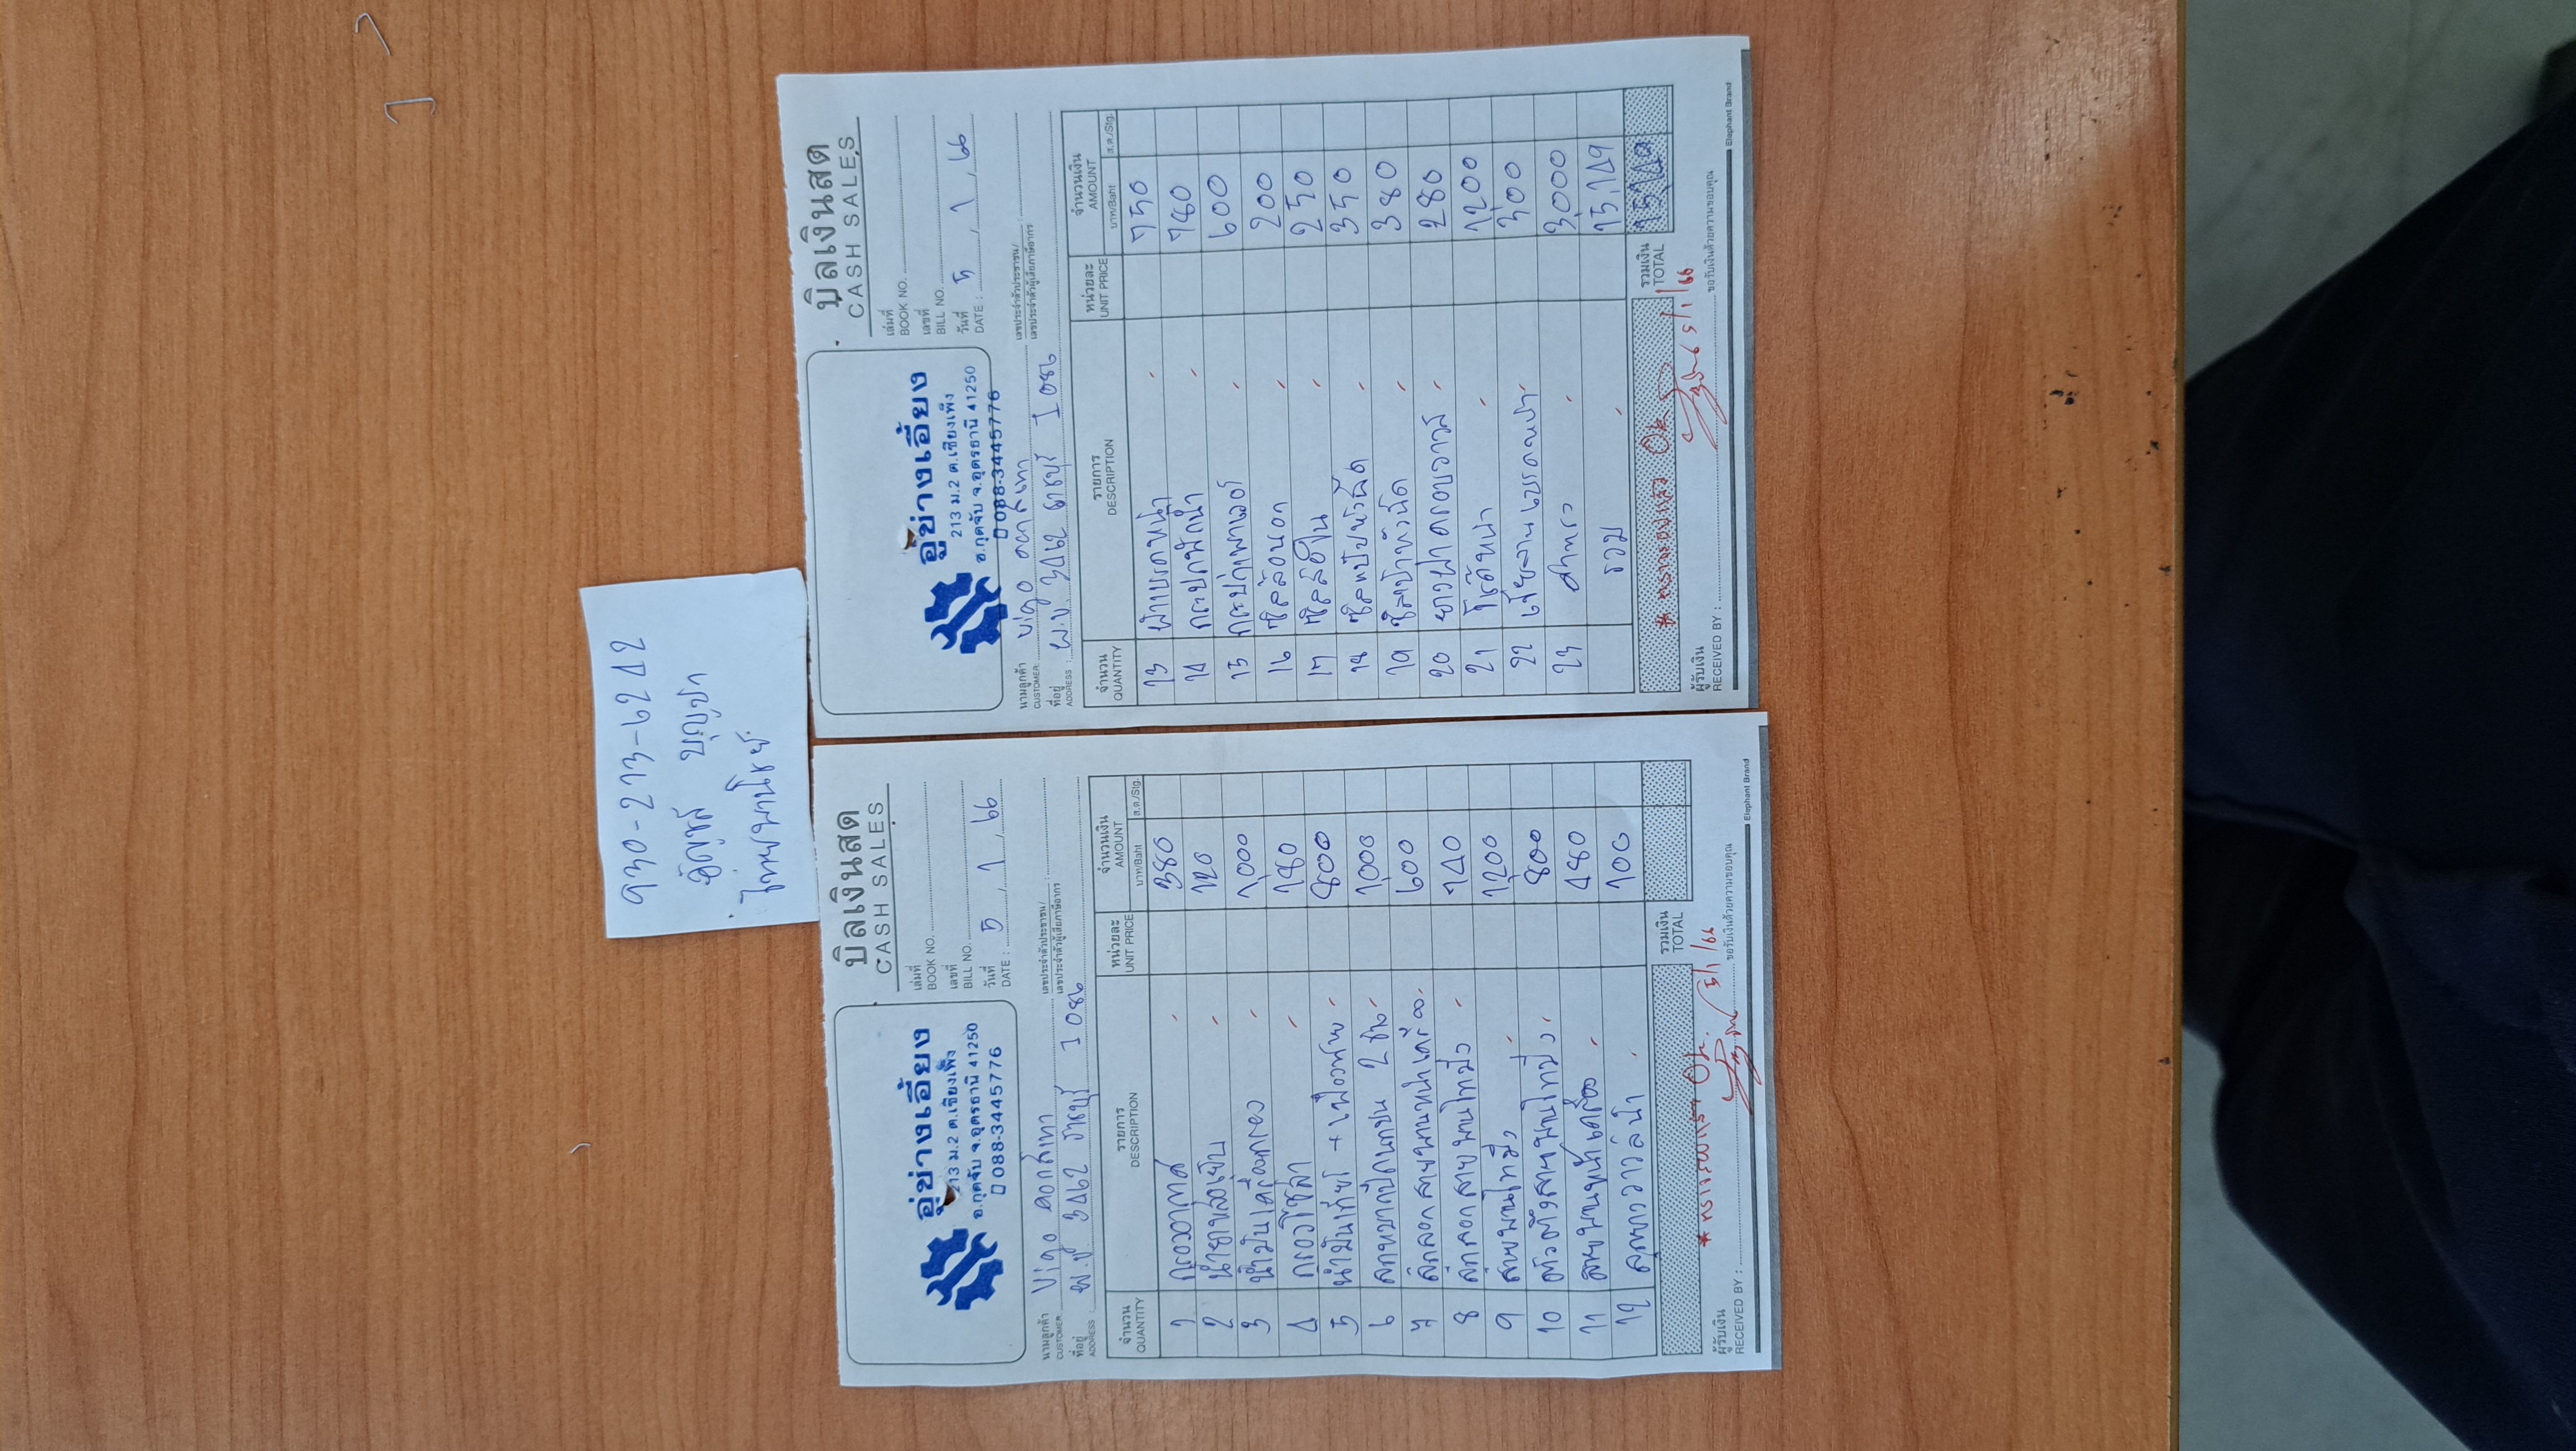 930-273-6242
ธัญชัย บุญชา
ไทยพานิชย์
อู่ช่างเอี้ยง
213 ม.2 ต.เชียงเพ็ง
อ.กุดจับ จ.อุดรธานี 41250
088-3445776
บิลเงินสด
CASH SALES
เล่มที่
BOOK NO.
เลขที่
BILL NO.
วันที่
DATE : 5 / 1 / 66
นามลูกค้า
CUSTOMER Vigo
เลขประจำตัวประชาชน/
เลขประจำตัวผู้เสียภาษีอากร :
ที่อยู่
ADDRESS : ผ.ข. 3462 ราชบุรี 1086
จำนวน รายการ หน่วยละ จำนวนเงิน
QUANTITY DESCRIPTION UNIT PRICE AMOUNT
บาท/Baht ส.ต./Stg.
1 กรองอากาศ 380
2 น้ำยาหล่อเย็น 120
3 น้ำมันเครื่อง+กรอง 1,000
4 กรองโซล่า 180
5 น้ำมันเกียร์ + เฟืองท้าย 800
6 ลูกหมากปีกนกบน 2 ข้าง 1000
7 ลูกลอกสายพานหน้าเครื่อง 600
8 ลูกลอกสายพานไทม์มิ่ง 740
9 สายพานไทม์มิ่ง 1,200
10 ตัวตั้งสายพานไทม์มิ่ง 800
11 สายพานหน้าเครื่อง 480
12 ลูกยางวาล์วน้ำ 100
รวมเงิน
TOTAL
* ตรวจรองแล้ว Ok.
5/1/66
ผู้รับเงิน
RECEIVED BY : ขอรับเงินด้วยความขอบคุณ
Elephant Brand
อู่ช่างเอี้ยง
213 ม.2 ต.เชียงเพ็ง
อ.กุดจับ จ.อุดรธานี 41250
088-3445776
บิลเงินสด
CASH SALES
เล่มที่
BOOK NO.
เลขที่
BILL NO.
วันที่
DATE : 5 / 1 / 66
นามลูกค้า
CUSTOMER Vigo
เลขประจำตัวประชาชน/
เลขประจำตัวผู้เสียภาษีอากร :
ที่อยู่
ADDRESS : ผ.ข. 3462 ราชบุรี 1086
จำนวน รายการ หน่วยละ จำนวนเงิน
QUANTITY DESCRIPTION UNIT PRICE AMOUNT
บาท/Baht ส.ต./Stg.
13 ผ้าเบรกหน้า 750
14 กระปุกพักน้ำ 780
15 600
16 ซีลล้อนอก 200
17 ซีลล้อใน 250
18 ซีลแป๊ปหัวฉีด 350
19 ซีลบ่าหัวฉีด 380
20 ยางฝาครอบวาล์ว 280
21 โช๊คหน้า 1200
22 เจียจานเบรคหน้า 300
23 ค่าแรง 3000
รวม 15,149
รวมเงิน
TOTAL 15,149
Ok
5/1/66
ผู้รับเงิน
RECEIVED BY : ขอรับเงินด้วยความขอบคุณ
Elephant Brand